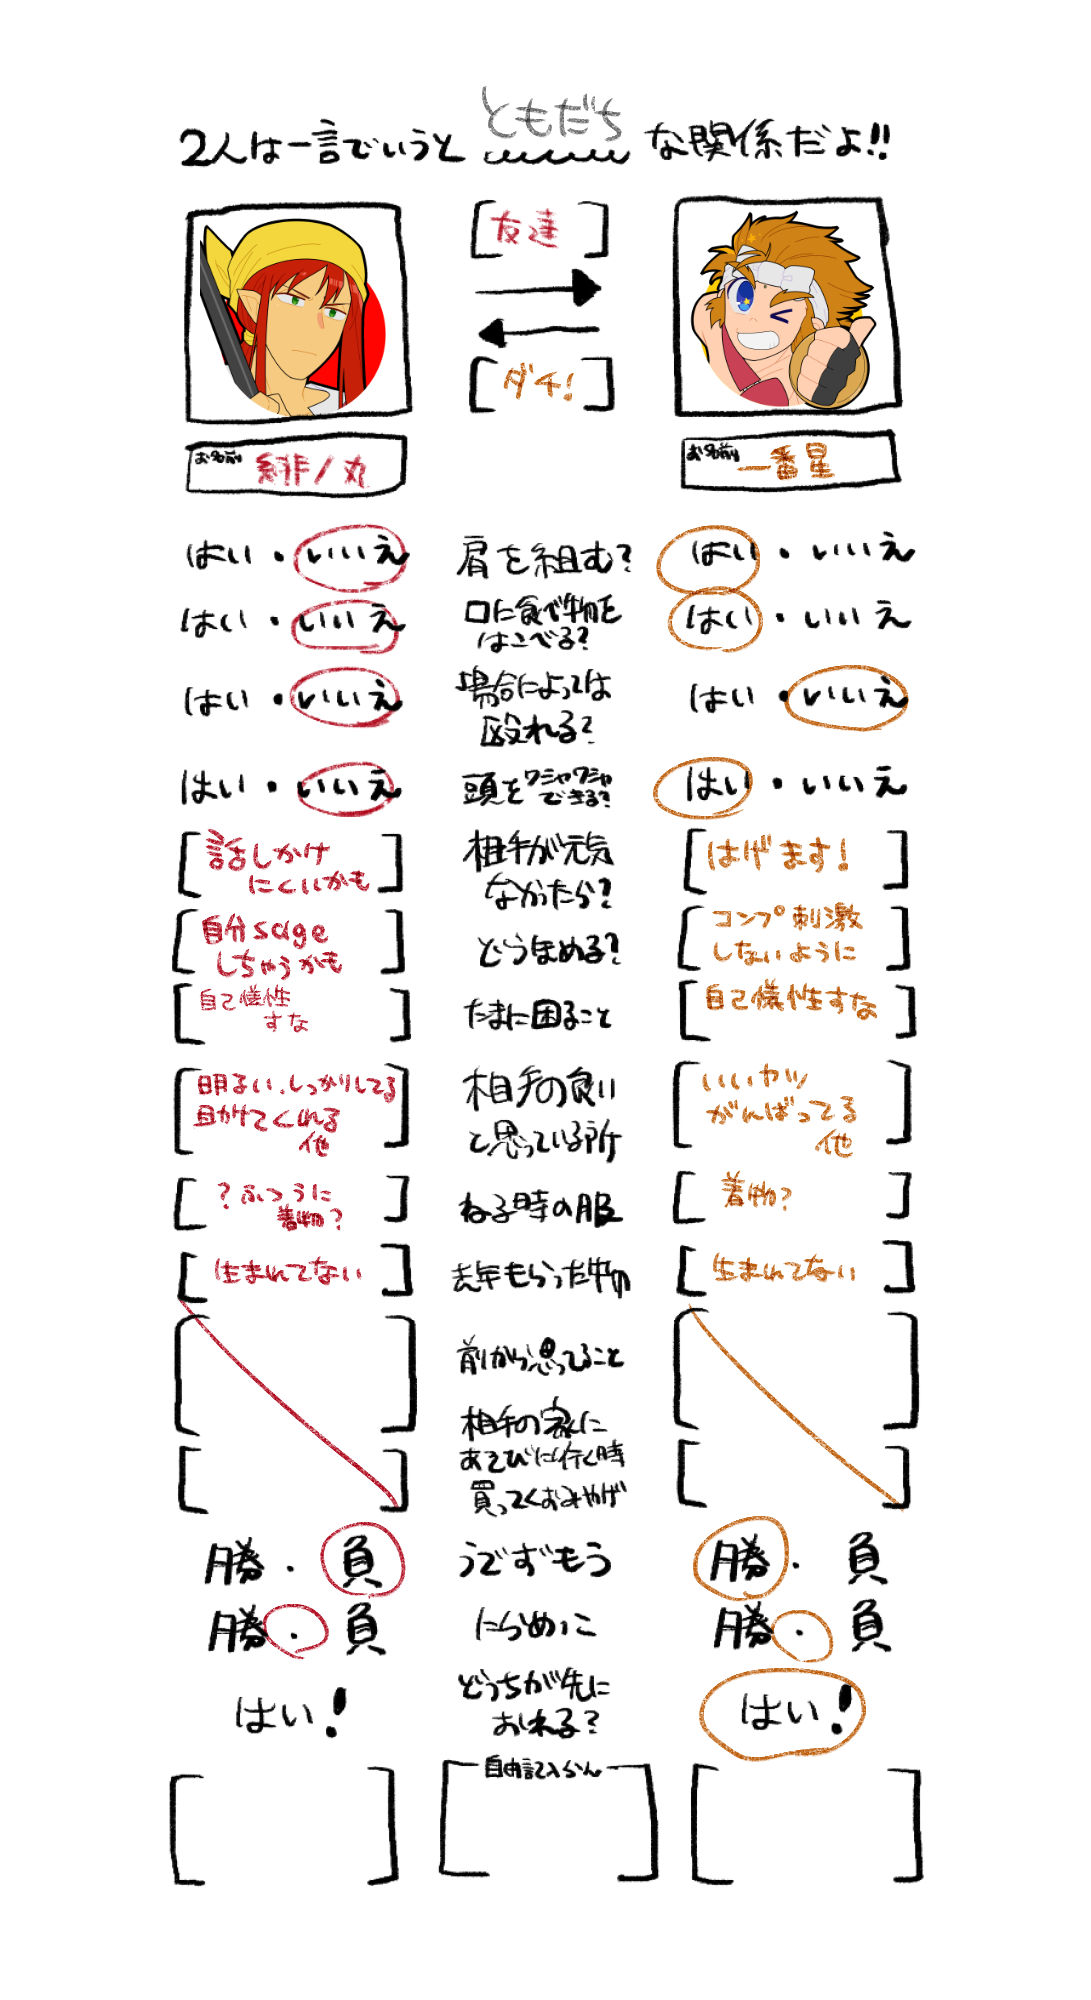 2人は一言でいうと ともだち な関係だよ!!
[友達]
[ダチ!]
お名前 緋ノ丸
お名前 一番星
はい・いいえ 肩を組む? はい・いいえ
はい・いいえ 口に食べ物を はい・いいえ
はこべる?
はい・いいえ 場合によっては はい・いいえ
殴れる?
はい・いいえ 頭をワシャワシャ はい・いいえ
できる?
[話しかけ 相手が元気 [はげます!]
にくいかも] なかったら?
[自分sage どうほめる? [コンプ刺激
しちゃうかも] しないように]
[自己犠牲 たまに困ること [自己犠牲すな]
すな]
[明るい、しっかりしてる 相手の良い [いいヤツ
目かけてくれる と思っている所 がんばってる
他] 他]
[?ふつうに ねる時の服 [着物?]
着物?]
[生まれてない] 去年もらった物 [生まれてない]
[ ] 前から思ってること [ ]
相手の家に
[ ] あそびに行く時 [ ]
買ってくおみやげ
勝・負 うでずもう 勝・負
勝・負 にらめっこ 勝・負
はい! どっちが先に はい!
おれる?
[ ] 自由記入らん [ ]